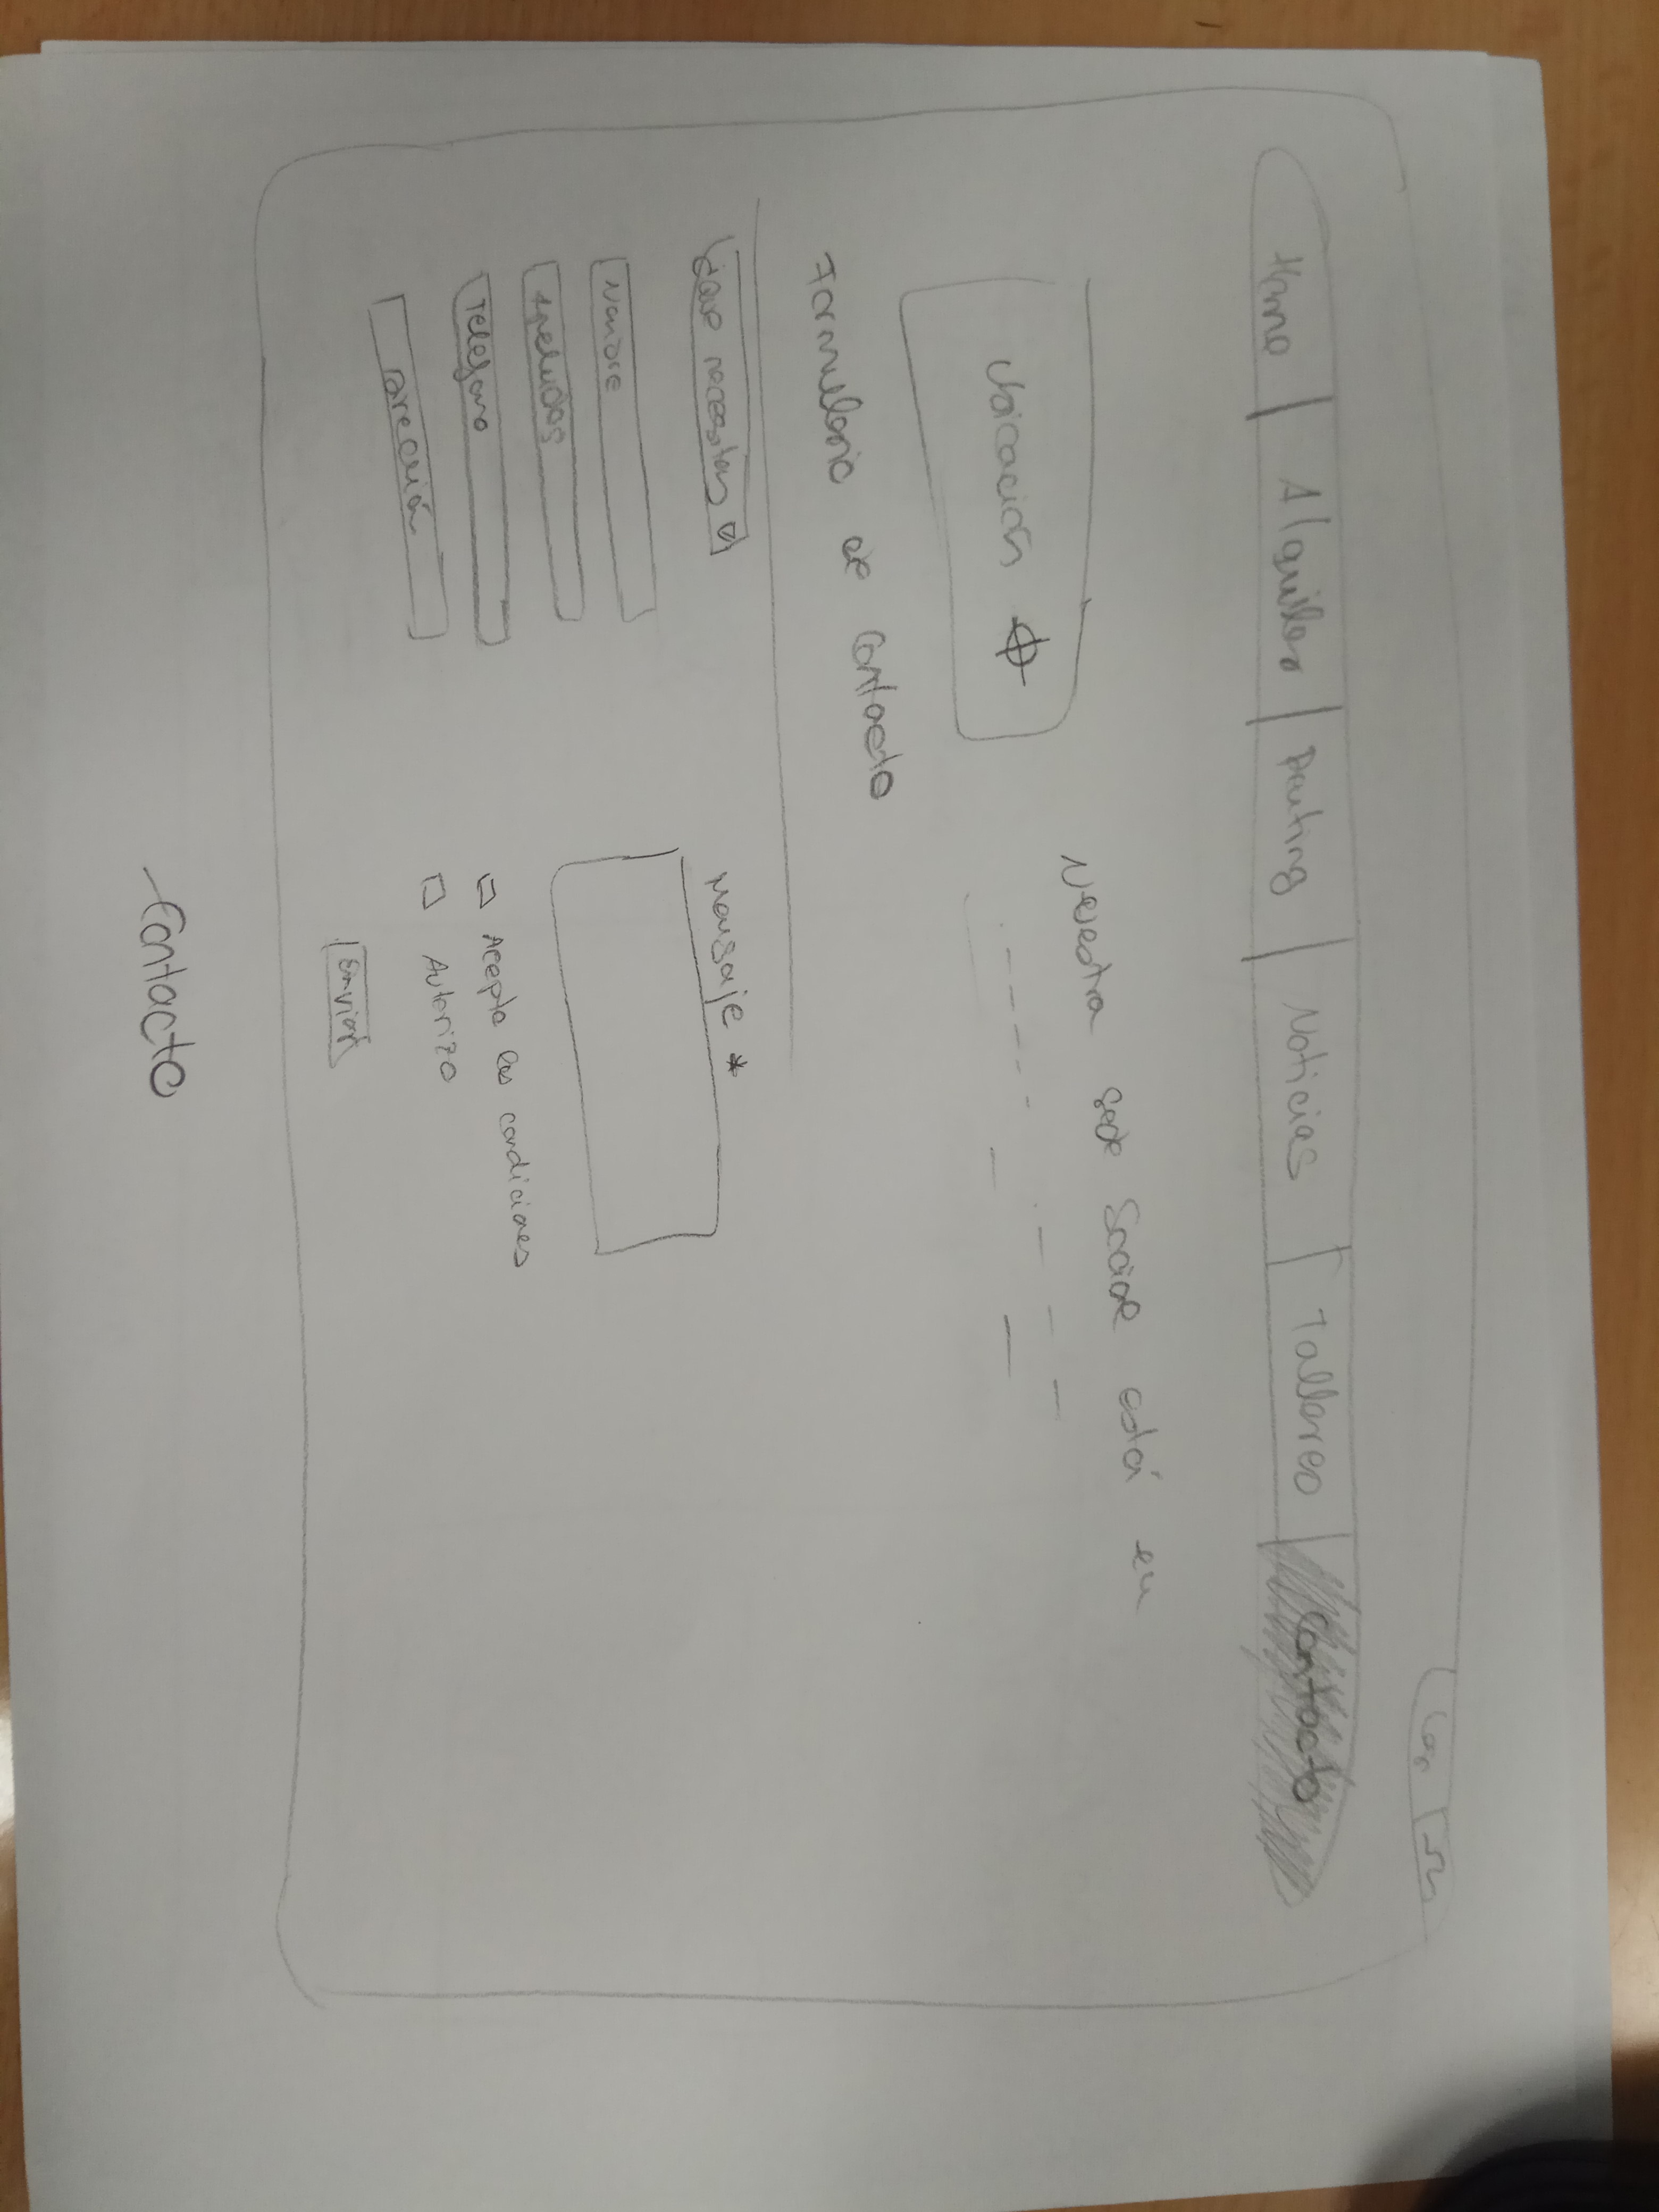 Log
Home Alquiler Renting Noticias Talleres Contacto
Nuestra sede Social está en
Ubicación
Formulario de Contacto
¿Que necesitas
Mensaje *
Nombre
Apellidos
Teléfono
Dirección
Acepto las condiciones
Autorizo
Enviar
Contacto